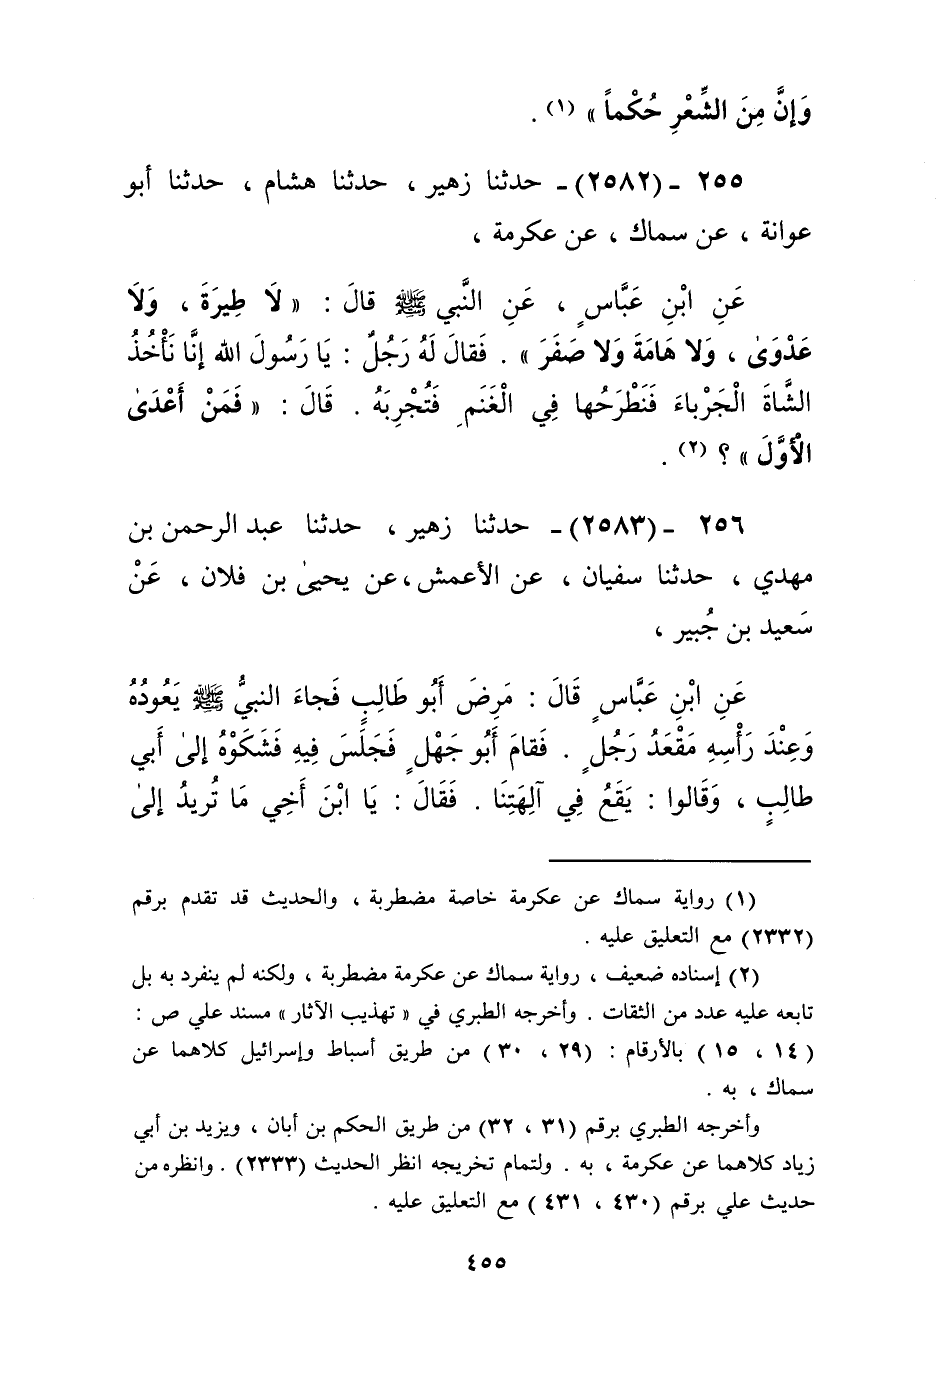 وَإِنَّ مِنَ الشِّعْرِ حُكْماً » (١) .
٢٥٥ ـ (٢٥٨٢) ـ حدثنا زهير ، حدثنا هشام ، حدثنا أبو
عوانة ، عن سماك ، عن عكرمة ،
عَنِ ابْنِ عَبَّاسٍ ، عَنِ النَّبي ﷺ قالَ : « لَا طِيرَةَ ، وَلَا
عَدْوَىٰ ، وَلا هَامَةَ وَلا صَفَرَ » . فَقالَ لَهُ رَجُلٌ : يَا رَسُولَ الله إنَّا نَأْخُذُ
الشَّاةَ الْجَرْباءَ فَنَطْرَحُها فِي الْغَنَمِ فَتُجْرِبَهُ . قَالَ : « فَمَنْ أَعْدَىٰ
الْأَوَّلَ » ؟ (٢) .
٢٥٦ ـ (٢٥٨٣) ـ حدثنا زهير ، حدثنا عبد الرحمن بن
مهدي ، حدثنا سفيان ، عن الأعمش ، عن يحيىٰ بن فلان ، عَنْ
سَعيد بن جُبير ،
عَنِ ابْنِ عَبَّاسٍ قَالَ : مَرِضَ أَبُو طَالِبٍ فَجاءَ النبيُّ ﷺ يَعُودُهُ
وَعِنْدَ رَأْسِهِ مَقْعَدُ رَجُلٍ . فَقامَ أَبُو جَهْلٍ فَجَلَسَ فِيهِ فَشَكَوْهُ إلىٰ أَبي
طالِبٍ ، وَقَالوا : يَقَعُ فِي آلِهَتِنَا . فَقَالَ : يَا ابْنَ أَخِي مَا تُريدُ إلىٰ
(١) رواية سماك عن عكرمة خاصة مضطربة ، والحديث قد تقدم برقم
(٢٣٣٢) مع التعليق عليه .
(٢) إسناده ضعيف ، رواية سماك عن عكرمة مضطربة ، ولكنه لم ينفرد به بل
تابعه عليه عدد من الثقات . وأخرجه الطبري في « تهذيب الآثار » مسند علي ص :
( ١٤ ، ١٥ ) بالأرقام : (٢٩ ، ٣٠ ) من طريق أسباط وإسرائيل كلاهما عن
سماك ، به .
وأخرجه الطبري برقم (٣١ ، ٣٢) من طريق الحكم بن أبان ، ويزيد بن أبي
زياد كلاهما عن عكرمة ، به . ولتمام تخريجه انظر الحديث (٢٣٣٣) . وانظره من
حديث علي برقم (٤٣٠ ، ٤٣١ ) مع التعليق عليه .
٤٥٥